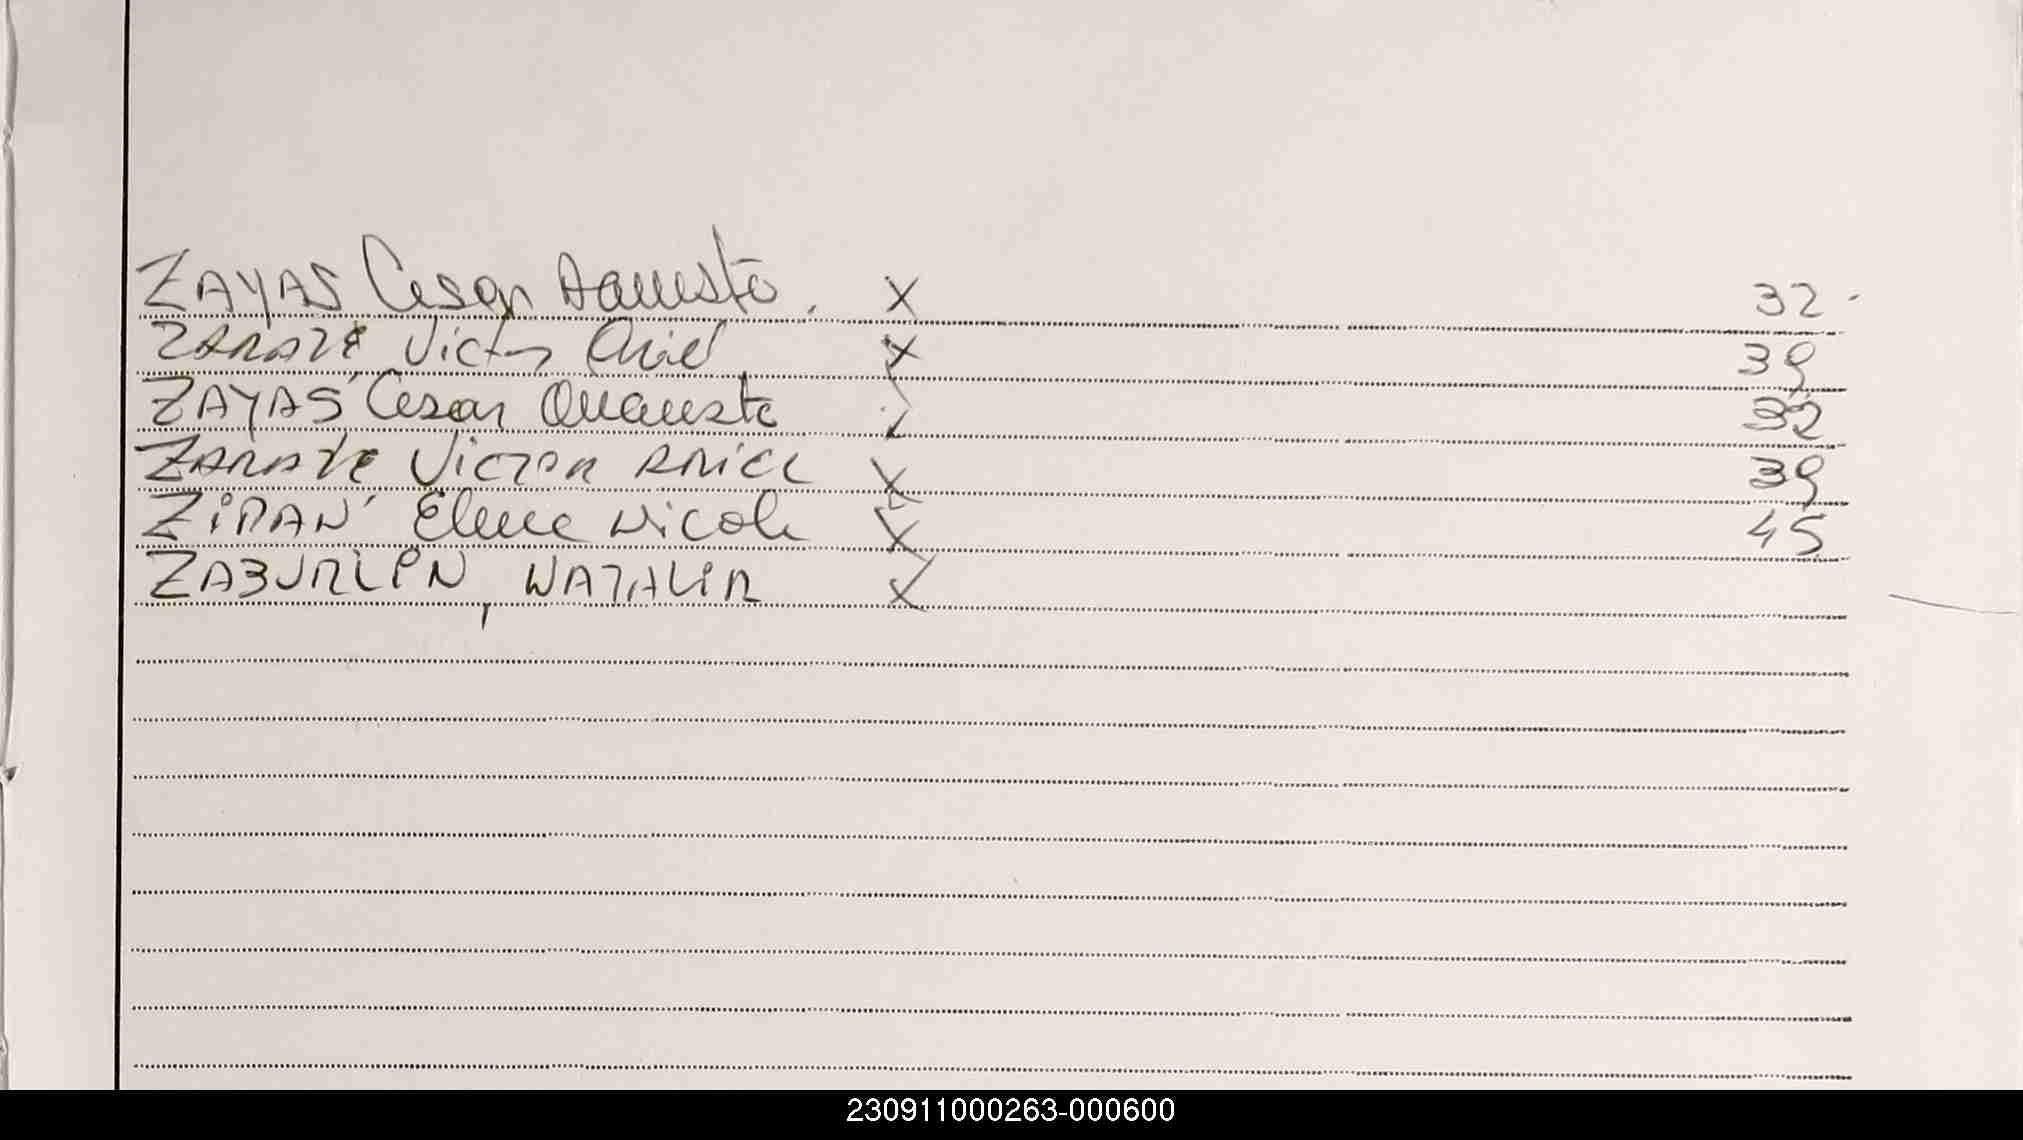 ZAYAS Cesar Augusto. X 32-
ZARATE Victor Ariel X 39
ZAYAS Cesar 32
ZARATE VICTOR ARIEL X 39
Nicole X 45
ZABURLIN, NATALIA X
230911000263-000600